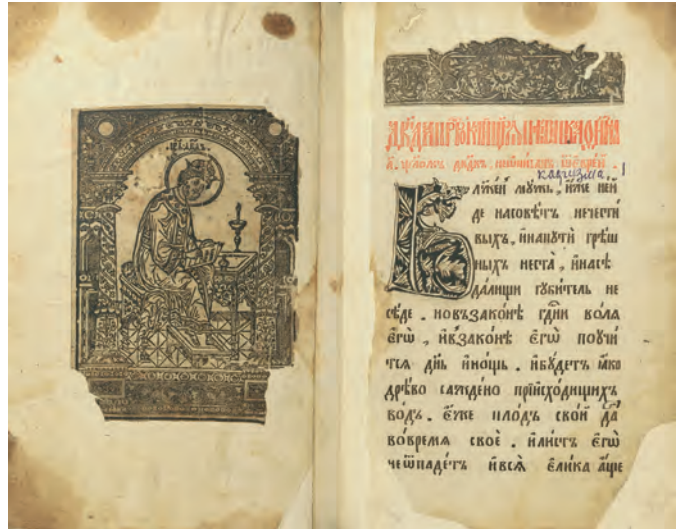 блже́нъ мꙋ́жь, и҆́же неи́
де насовѣ́тъ нечести́
выхъ, и҆нанꙋтѝ грѣ́ш
ныхъ неста̀, и҆насѣ
да́лищи гꙋби́тель не
сѣ́де. новъзако́нѣ гдⷭ҇ни во́лѧ
є҆гѡ̀, и҆в̾зако́нѣ є҆гѡ̀ поꙋчи́
тсѧ дн҃ь и҆но́щь. и҆бꙋ́детъ ꙗ҆́ко
дре́во сажде́но прии҆схо́дищихъ
во́дъ. є҆́же пло́дъ сво́й да́
во́времѧ своѐ. и҆ли́стъ є҆гѡ̀
неѿпаде́тъ и҆всѧ̀ є҆ли́ка а҆́ще